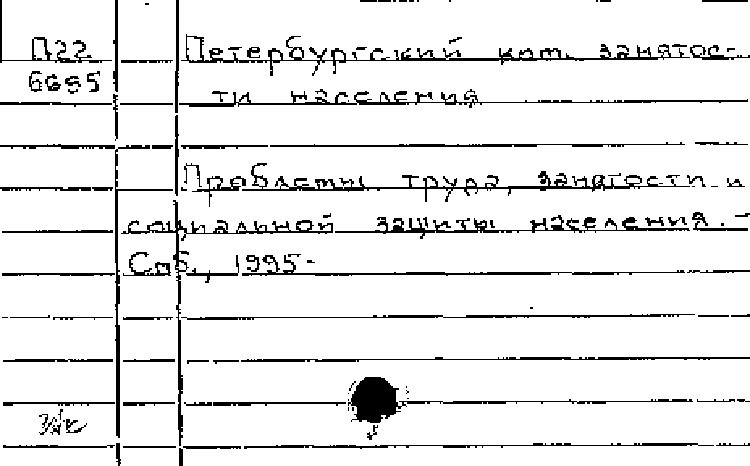 П22 Петербургский ком. занятос-
6685 ти населения
Проблемы труда, занятости и
социальной защиты населения. -
Спб., 1995-